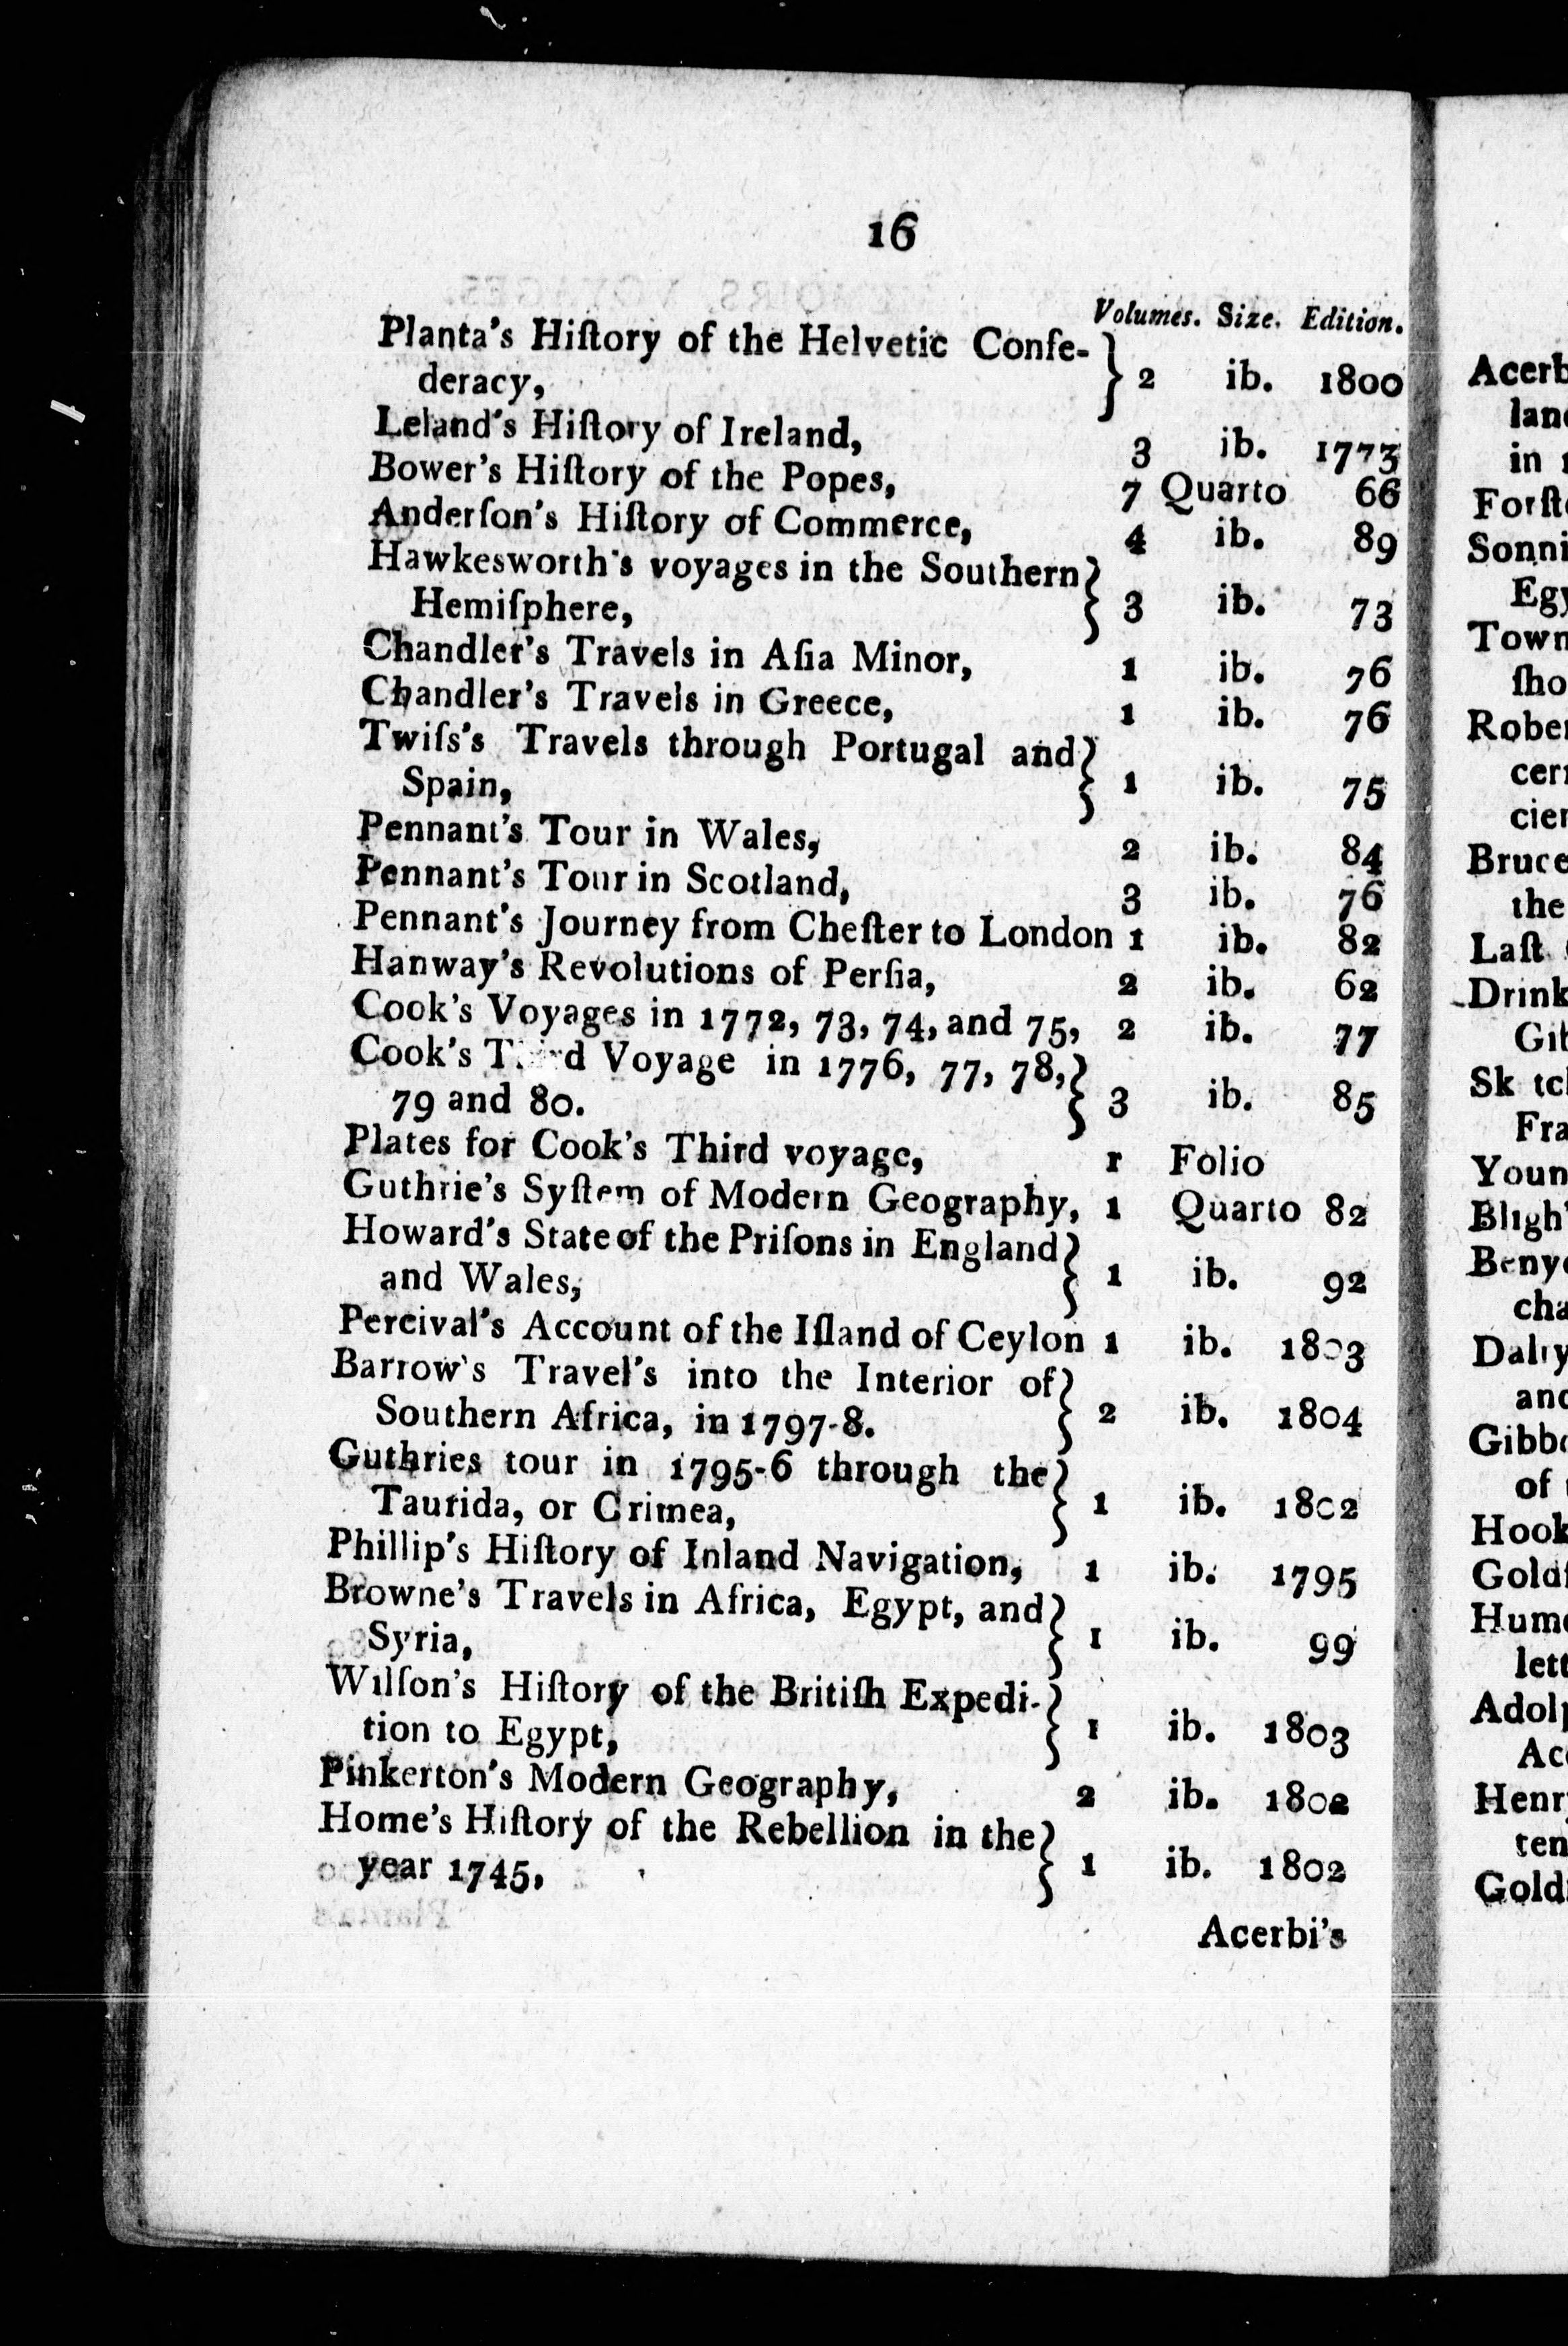 16
Volumes. Size. Edition.
Planta's Hiſtory of the Helvetic Confe-
deracy, } 2 ib. 1800
Leland's Hiſtory of Ireland, 3 ib. 1773
Bower's Hiſtory of the Popes, 7 Quarto 66
Anderſon's Hiſtory of Commerce, 4 ib. 89
Hawkesworth's voyages in the Southern
Hemiſphere, } 3 ib. 73
Chandler's Travels in Aſia Minor, 1 ib. 76
Chandler's Travels in Greece, 1 ib. 76
Twiſs's Travels through Portugal and
Spain, } 1 ib. 75
Pennant's Tour in Wales, 2 ib. 84
Pennant's Tour in Scotland, 3 ib. 76
Pennant's Journey from Cheſter to London 1 ib. 82
Hanway's Revolutions of Perſia, 2 ib. 62
Cook's Voyages in 1772, 73, 74, and 75, 2 ib. 77
Cook's Third Voyage in 1776, 77, 78,
79 and 80. } 3 ib. 85
Plates for Cook's Third voyage, 1 Folio
Guthrie's Syſtem of Modern Geography, 1 Quarto 82
Howard's State of the Priſons in England
and Wales, } 1 ib. 92
Percival's Account of the Iſland of Ceylon 1 ib. 1803
Barrow's Travel's into the Interior of
Southern Africa, in 1797-8. } 2 ib. 1804
Guthries tour in 1795-6 through the
Taurida, or Crimea, } 1 ib. 1802
Phillip's Hiſtory of Inland Navigation, 1 ib. 1795
Browne's Travels in Africa, Egypt, and
Syria, } 1 ib. 99
Wilſon's Hiſtory of the Britiſh Expedi-
tion to Egypt, } 1 ib. 1803
Pinkerton's Modern Geography, 2 ib. 1802
Home's Hiſtory of the Rebellion in the
year 1745, } 1 ib. 1802
Acerbi's
in
Egy
Bruce
the
Laſt
Drink
Fra
Bligh'
and
of
Hook
lett